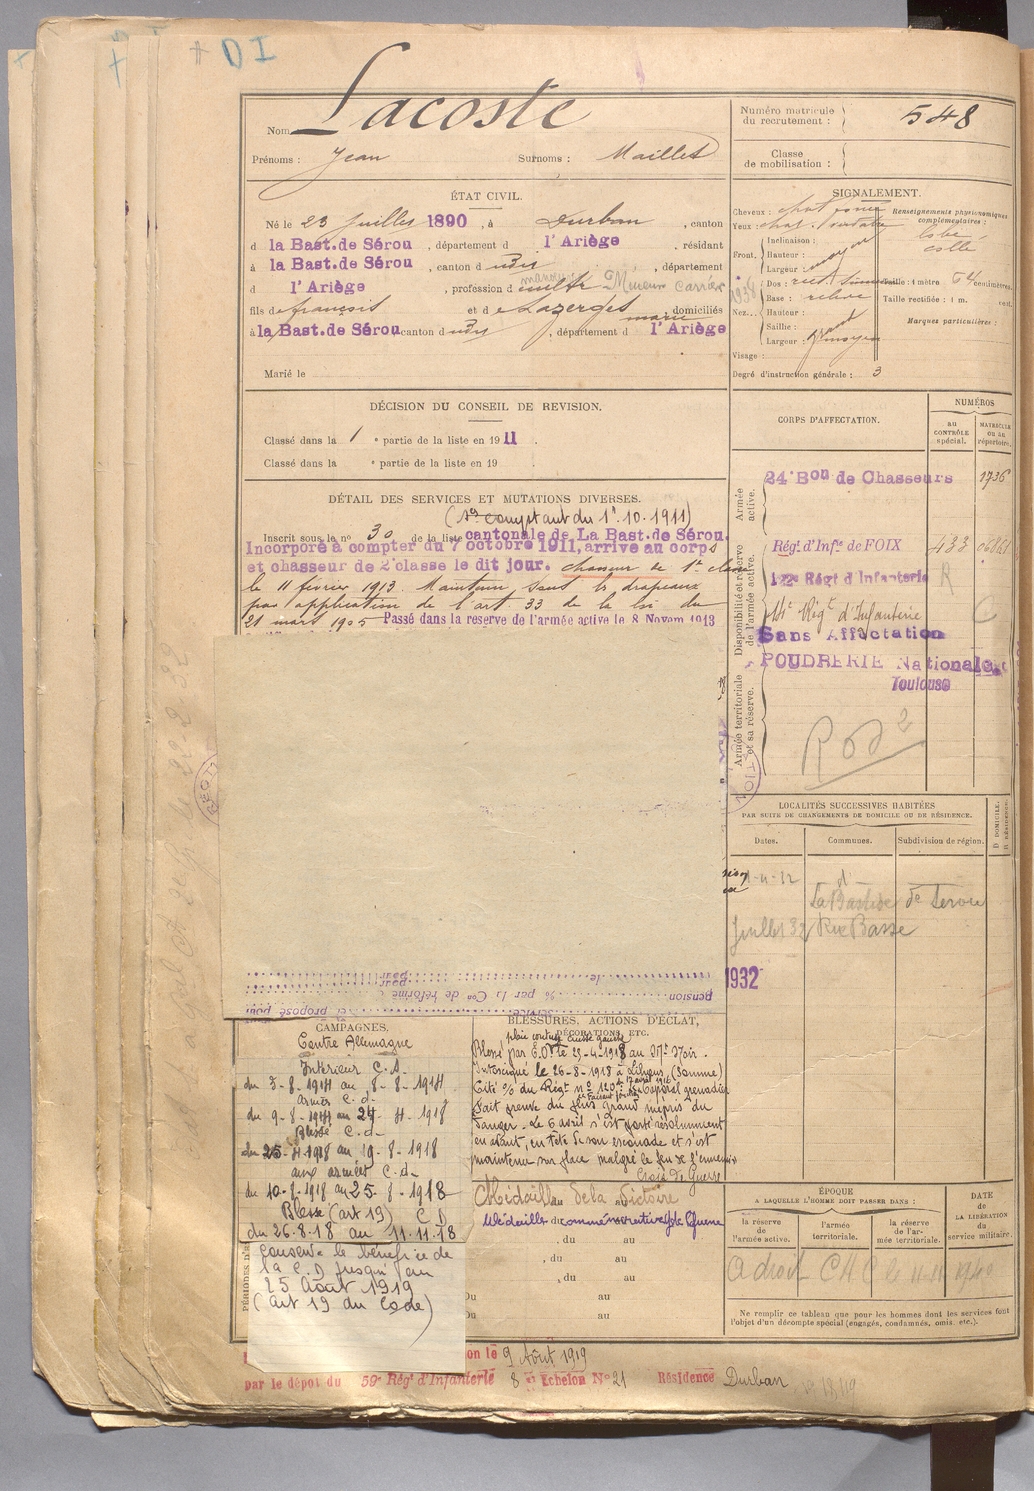 Nom Lacoste
Prénoms : Jean Surnoms : Maillet
Numéro matricule du recrutement : 548
Classe de mobilisation :
ÉTAT CIVIL.
Né le 23 juillet 1890, à Durban, canton
d la Bast. de Sérou, département d l'Ariège, résidant
à la Bast. de Sérou, canton d , département
d l'Ariège, profession d cultr Mineur Carrier 1938
fils de françois et de Lazerges marie domiciliés
à la Bast. de Sérou canton d , département d l'Ariège
Marié le
SIGNALEMENT.
Cheveux : chat foncé
Yeux :
Renseignements physionomiques complémentaires :
lobe
collé
Front. Inclinaison :
Hauteur : moyen
Largeur :
Nez. Dos : rect
Base : relevé
Hauteur :
Saillie :
Largeur : moyen
Visage :
Taille : 1 mètre centimètres.
Taille rectifiée : 1 m. cent.
Marques particulières :
Degré d'instruction générale : 3
DÉCISION DU CONSEIL DE REVISION.
Classé dans la 1 e partie de la liste en 1911.
Classé dans la e partie de la liste en 19
DÉTAIL DES SERVICES ET MUTATIONS DIVERSES.
(Se comptant du 1r.10.1911)
Inscrit sous le no 30 de la liste cantonale de La Bast. de Sérou.
Incorporé à compter du 7 octobre 1911, arrivé au corps
et chasseur de 2e classe le dit jour. chasseur de 1e classe
le 11 février 1913. Maintenu sous les drapeaux
par application de l'art 33 de la loi du
21 mars 1905 Passé dans la réserve de l'armée active le 8 Novem 1913
CORPS D'AFFECTATION.
NUMÉROS
AU CONTRÔLE spécial.
MATRICULE OU AU répertoire.
Armée active.
24e Bon de Chasseurs 1736
Disponibilité et réserve de l'armée active.
Régt d'Infie de FOIX 433
Régt d'Infanterie R
14e Régt d'Infanterie
Sans Affectation
POUDRERIE Nationale
Toulouse
Armée territoriale et sa réserve.
LOCALITÉS SUCCESSIVES HABITÉES
PAR SUITE DE CHANGEMENTS DE DOMICILE OU DE RÉSIDENCE.
Dates. Communes. Subdivision de région. D. DOMICILE. R. RÉSIDENCE.
La Bastide de Serou
Juillet 32 Rue Basse
1932
pension % par la Con de réforme
et proposé pour
CAMPAGNES.
Contre Allemagne
Intérieur C.S.
du 3-8-1914 au 8-8-1914
armées C.d.
du 9-8-1914 au 24-4-1918
Blessé C.d.
du 25-4-1918 au 9-8-1918
aux armées C.d.
du 10-8-1918 au 25-8-1918
Blessé (art 19) C D
du 26.8.18 au 11.11.18
conserve le bénéfice de
la C.D jusqu'au
25 Août 1919
(art 19 du Code)
BLESSURES, ACTIONS D'ÉCLAT, DÉCORATIONS, ETC.
plaie cuisse gauche
Blessé par E.O. le 25-4-1918 au Mt Noir.
Intoxiqué le 26-8-1918 à Lihons (Somme)
Cité O/ du Régt no 120 du 17 avril 1916 Caporal grenadier
fait preuve du plus grand mépris du
danger. Le 6 avril s'est porté résolument
en avant, en tête de son escouade et s'est
maintenu sur place malgré le feu de l'ennemi
Croix de Guerre
Médaille de la Victoire
Médaille commémorative de la Guerre
, du au
, du au
, du au
Du au
Du au
ÉPOQUE
A LAQUELLE L'HOMME DOIT PASSER DANS :
la réserve de l'armée active.
l'armée territoriale.
la réserve de l'armée territoriale.
DATE DE LA LIBÉRATION du service militaire.
A droit C H C le 11-11 1940
Ne remplir ce tableau que pour les hommes dont les services font l'objet d'un décompte spécial (engagés, condamnés, omis, etc.).
on le 9 Août 1919
par le dépôt du 59e Régt d'Infanterie 8 e Echelon No 21 Résidence Durban